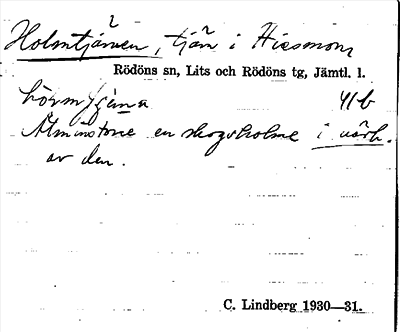 Holmtjärnen, tjärn i Hissmon,
Rödöns sn, Lits och Rödöns tg, Jämtl. l.
41b
Åtminstone en skogsholme i närh.
av den.
C. Lindberg 1930—31.